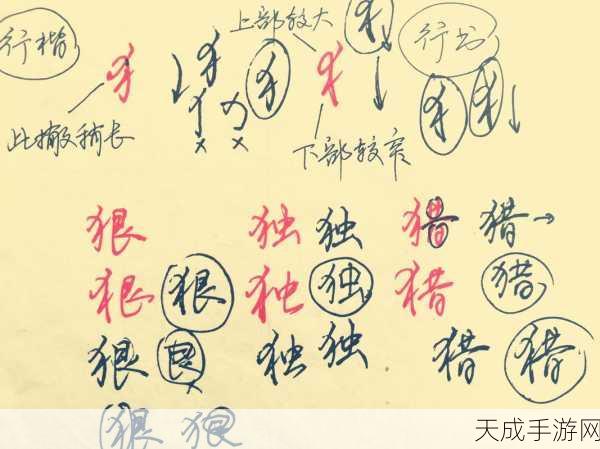 上部较大
行楷 犭 犭 犭 犭 犭 行书
此撇稍长 下部较窄
狠 独 独 猎 猎
狠 狠 独 独 猎 猎
狠 艮 独 独 猎 猎
狠 狠
天成手游网